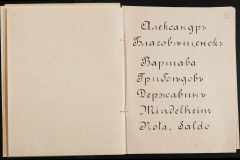 Александръ
Благовѣщенскъ
Варшава
Грибоѣдовъ
Державинъ
Mindelheim
Nota, Saldo